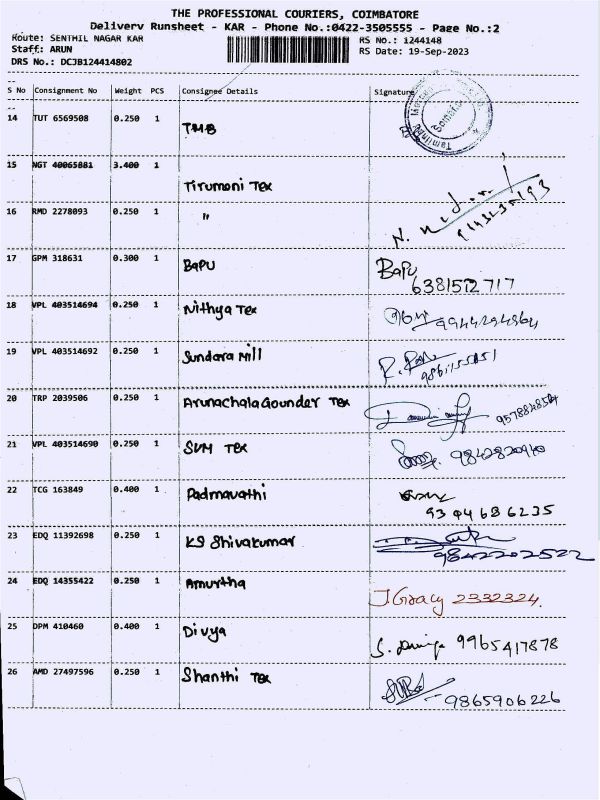 THE PROFESSIONAL COURIERS, COIMBATORE
Delivery Runsheet - KAR - Phone No.:0422-3505555 - Page No.:2
Route: SENTHIL NAGAR KAR
RS No.: 1244148
Staff: ARUN
RS Date: 19-Sep-2023
DRS No.: DCJB124414802
S No Consignment No Weight PCS Consignee Details Signature
14 TUT 6569508 0.250 1 TMB
15 NGT 40065881 3.400 1 Tirumani Tex
16 RMD 2278093 0.250 1 "
17 GPM 318631 0.300 1 BAPU Bapu
6381572717
18 VPL 403514694 0.250 1 Nithya Tex
19 VPL 403514692 0.250 1 Sundara Mill
20 TRP 2039506 0.250 1 Arunachala Gounder Tex
21 VPL 403514690 0.250 1 SVM Tex 9842820940
22 TCG 163849 0.400 1 Padmavathi
9344686235
23 EDQ 11392698 0.250 1 KS Shivakumar
9842202522
24 EDQ 14355422 0.250 1 Amurtha J. Gracy 2332324.
25 DPM 410460 0.400 1 Divya 9965417878
26 AMD 27497596 0.250 1 Shanthi Tex
9865906226